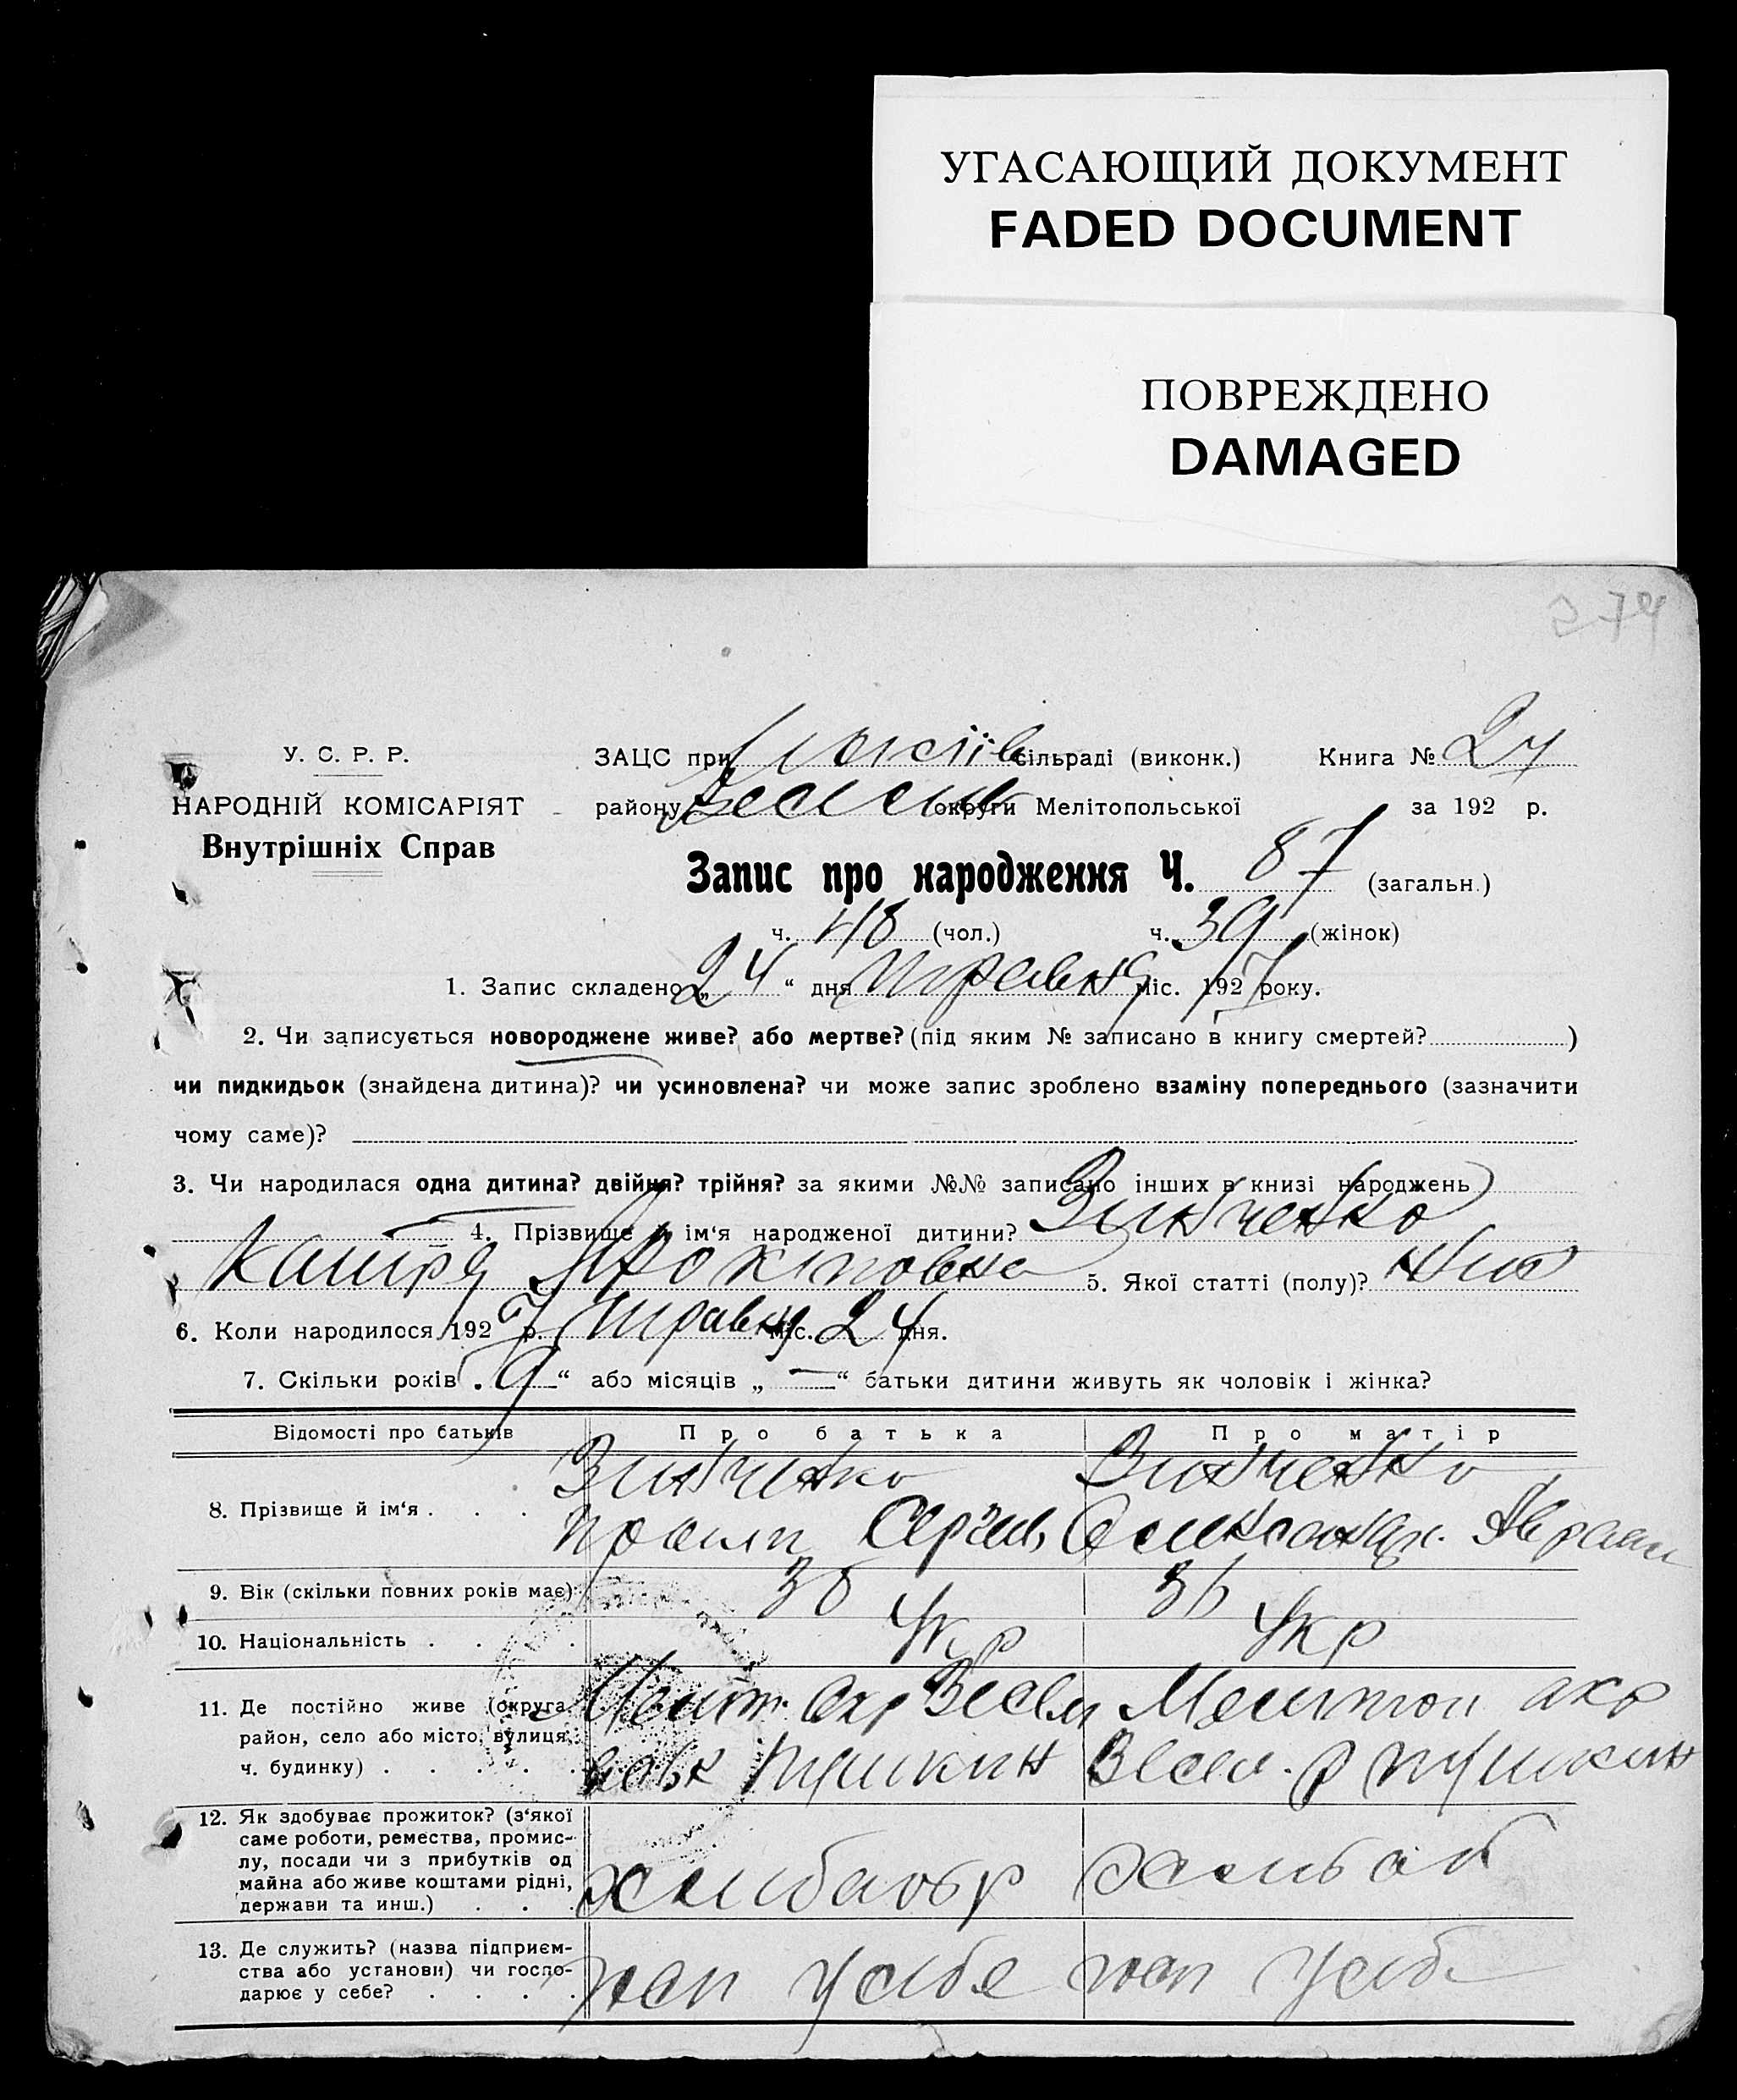 УГАСАЮЩИЙ ДОКУМЕНТ
FADED DOCUMENT
ПОВРЕЖДЕНО
DAMAGED
274
У. С. Р. Р.
НАРОДНІЙ КОМІСАРІЯТ
Внутрішніх Справ
ЗАЦС при сільраді (виконк.) Книга №
району Весел округи Мелітопольської за 192 р.
Запис про народження Ч. 87 (загальн.)
ч. 48 (чол.) ч. 39 (жінок)
1. Запис складено „24“ дня травня міс. 1927 року.
2. Чи записується новороджене живе? або мертве? (під яким № записано в книгу смертей? )
чи пидкидьок (знайдена дитина)? чи усиновлена? чи може запис зроблено взаміну попереднього (зазначити
чому саме)?
3. Чи народилася одна дитина? двійня? трійня? за якими №№ записано інших в книзі народжень
4. Прізвище й ім‘я народженої дитини? Зинченко
Катря 5. Якої статті (полу)? жін
6. Коли народилося 1927 р. травня міс. 24 дня.
7. Скільки років „9“ або місяців „—“ батьки дитини живуть як чоловік і жінка?
Відомості про батьків Про батька Про матір
8. Прізвище й ім‘я . . . Зинченко Зинченко
Сергіев Олександр. Аврам
9. Вік (скільки повних років має) 38 36
10. Національність . . . . Укр Укр
11. Де постійно живе (округа,
район, село або місто, вулиця,
ч. будинку) . . . . .
Меліт. окр Весел Мелитоп окр
Пушкин Весел. р Пушкин
12. Як здобуває прожиток? (з‘якої
саме роботи, ремества, промис-
лу, посади чи з прибутків од
майна або живе коштами рідні,
держави та инш.) . . .
хлибороб хлибоб
13. Де служить? (назва підприєм-
ства або установи) чи госпо-
дарює у себе? . . . .
у себе у себе